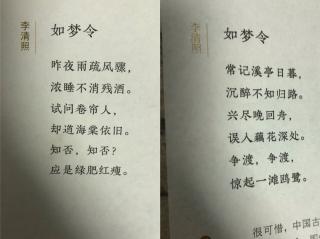 李清照
如梦令
昨夜雨疏风骤，
浓睡不消残酒。
试问卷帘人，
却道海棠依旧。
知否，知否？
应是绿肥红瘦。
李清照
如梦令
常记溪亭日暮，
沉醉不知归路。
兴尽晚回舟，
误入藕花深处。
争渡，争渡，
惊起一滩鸥鹭。
很可惜，中国古